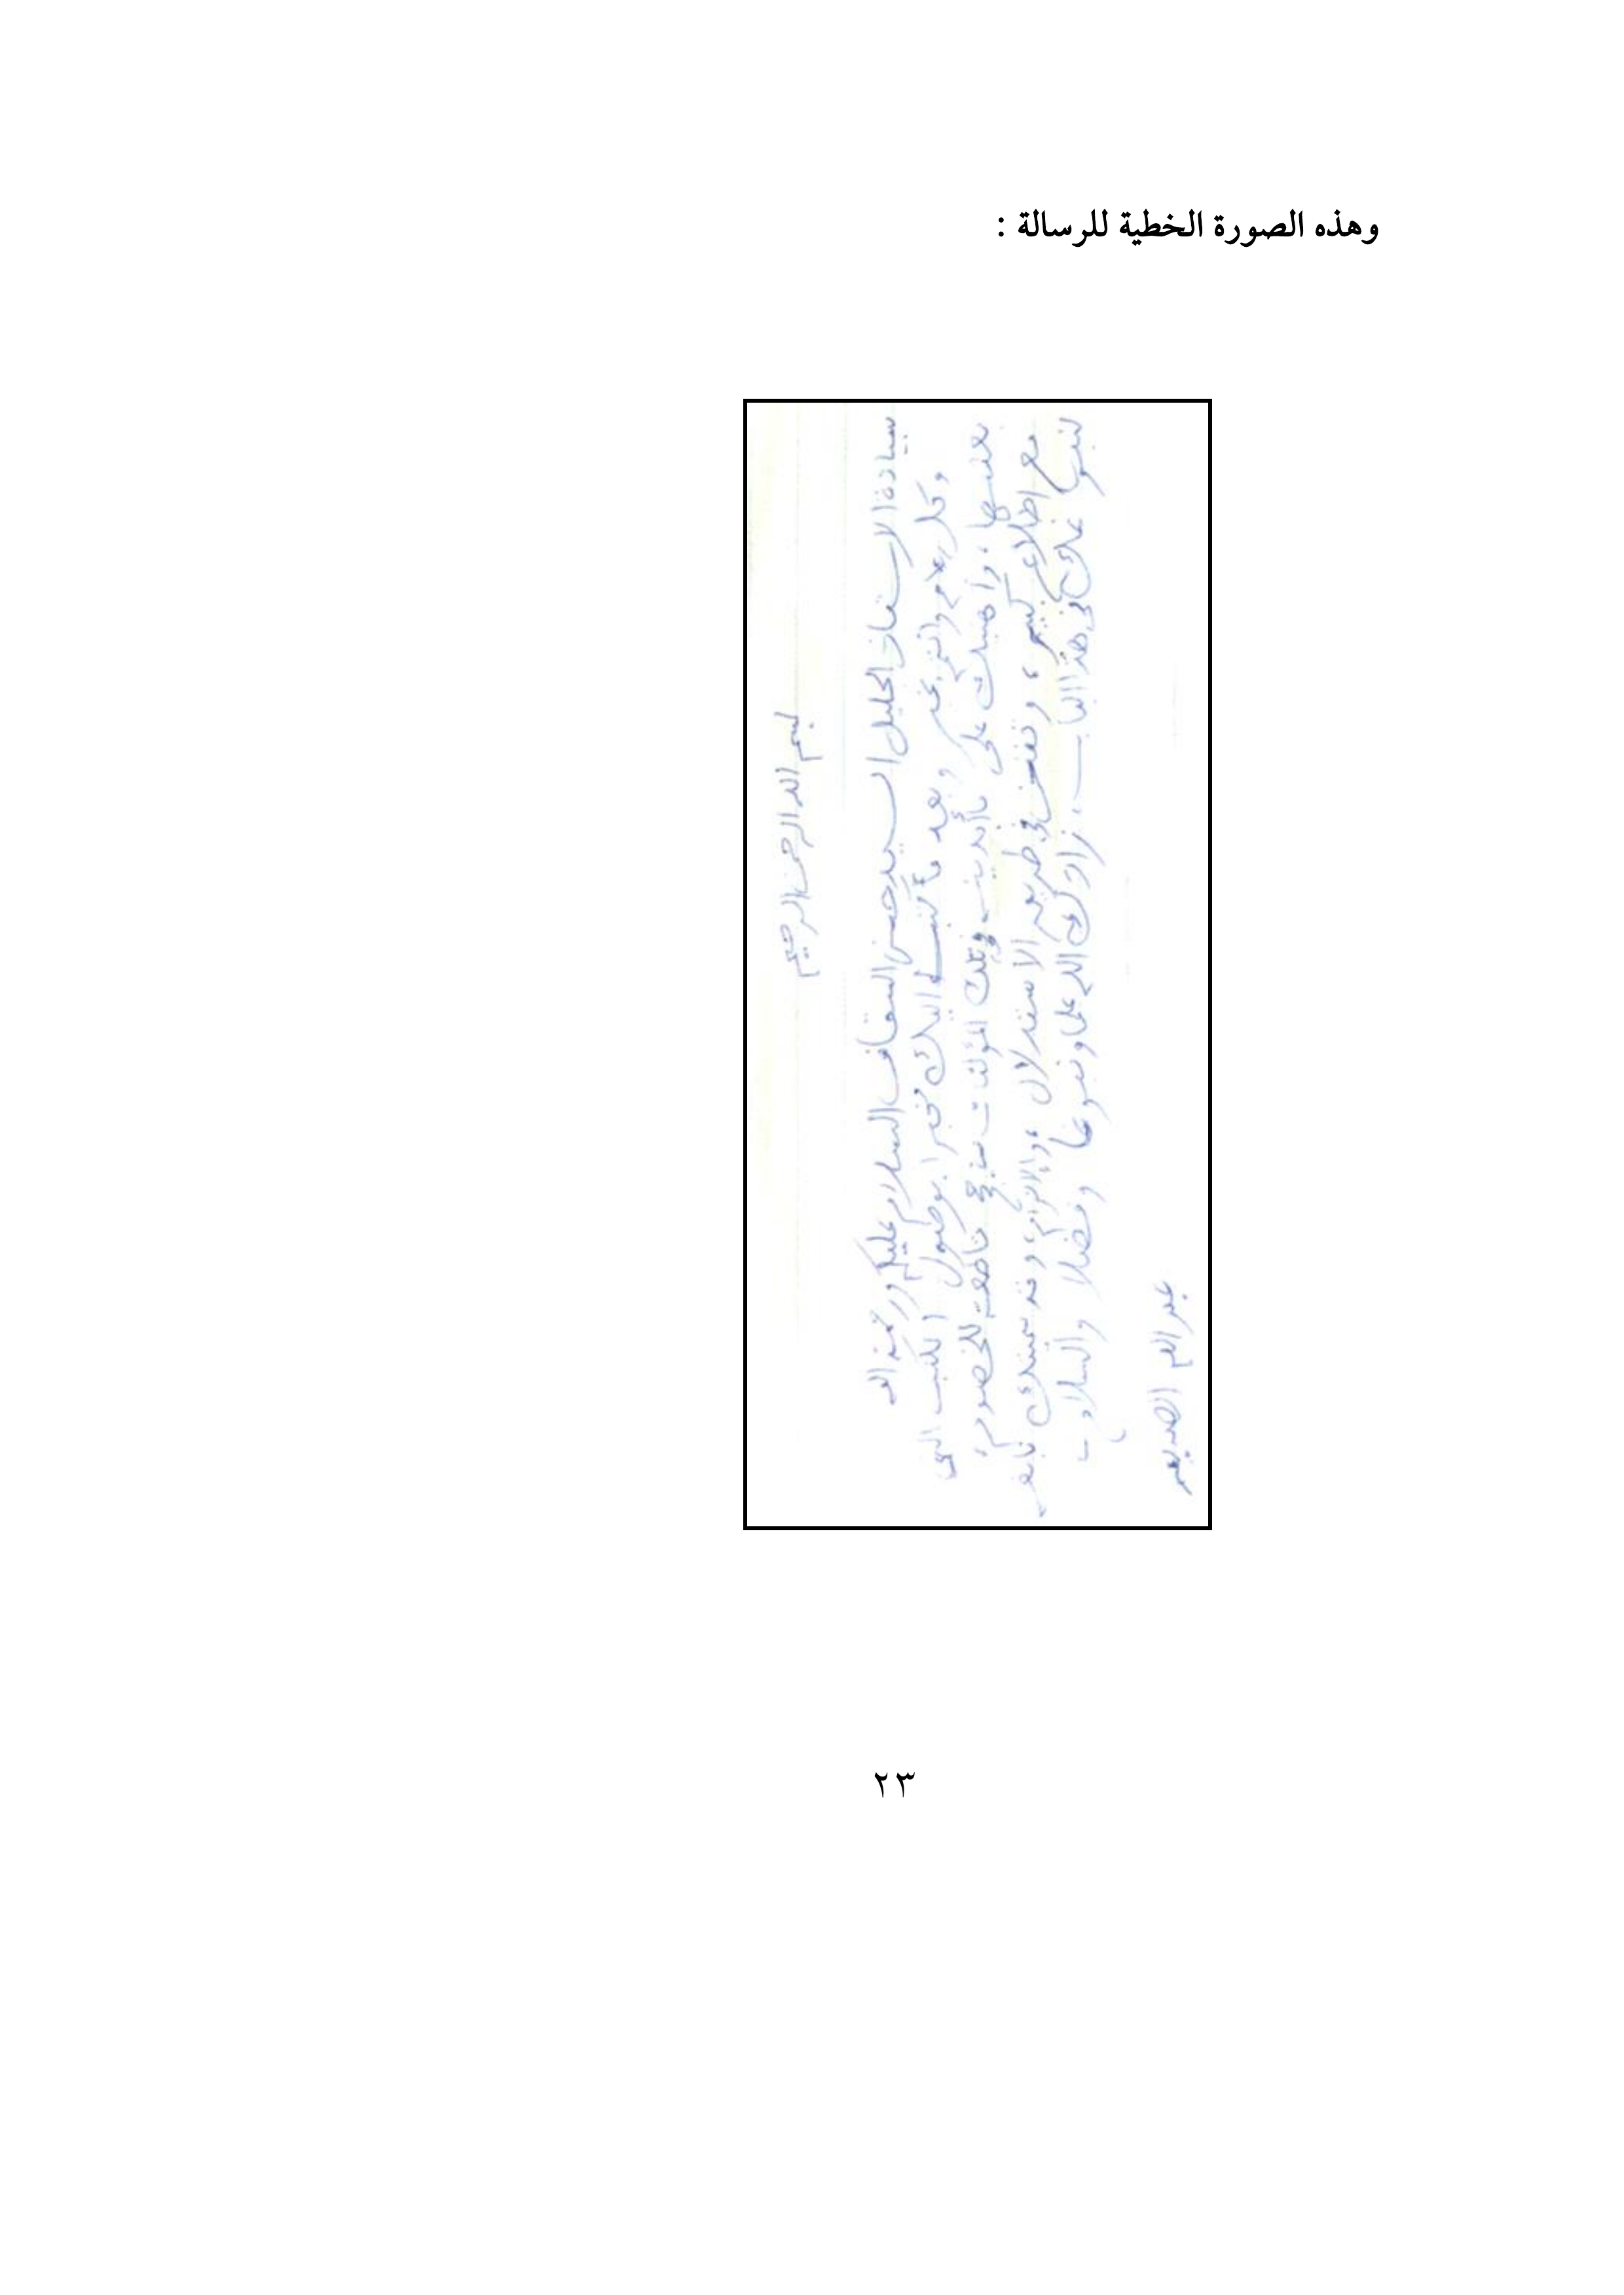 وهذه الصورة الخطية للرسالة :
بسم الله الرحمن الرحيم
سيادة الاستاذ الجليل السيد حسن السقاف السلام عليكم ورحمة الله
وكل عام وأنتم بخير وبعد فأكتب إليك مخبرا بوصول الكتب التي
بعثتها ، وأهنئك على ما أبديت في تلك المؤلفات من حجج قاطعة للخصوم ،
مع اطلاع كبير ، وتفنن في طريق الاستدلال ، والإلزام ، وقد سميتك
لنبوغك في هذا الباب . زادك الله علما ونبوغا وفضلا والسلام
عبد الله الصديق
٢٣